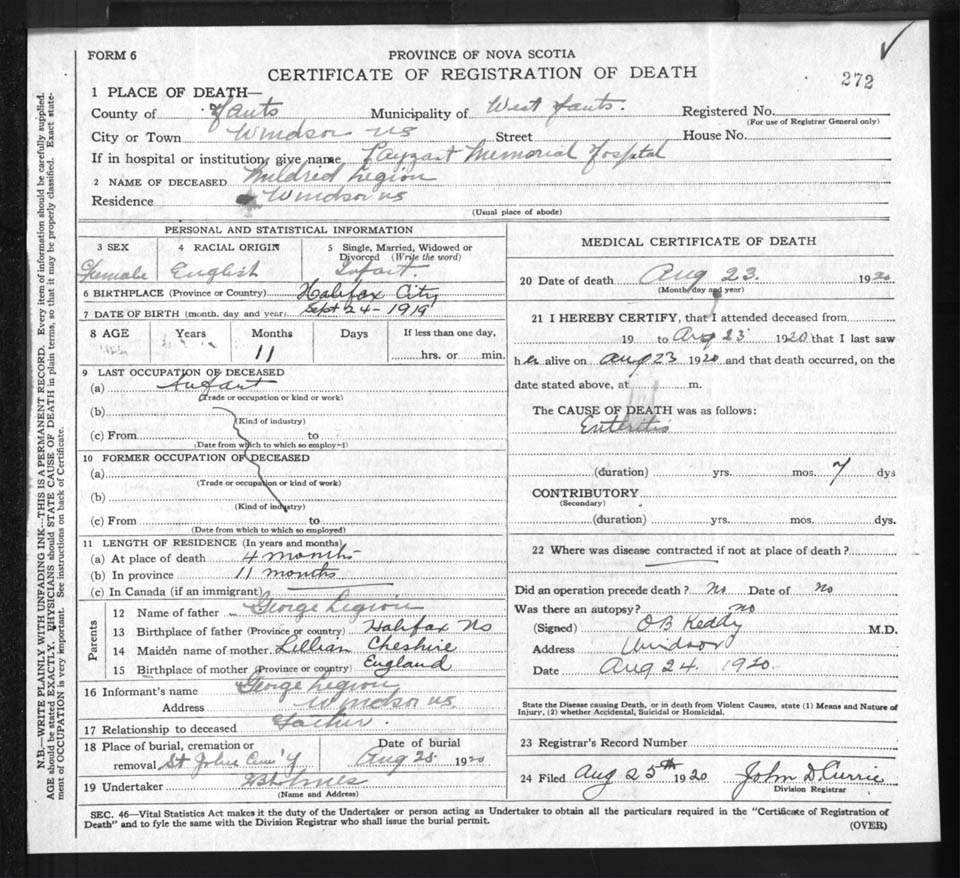 FORM 6
PROVINCE OF NOVA SCOTIA
CERTIFICATE OF REGISTRATION OF DEATH
272
1 PLACE OF DEATH—
County of Hants Municipality of West Hants. Registered No.
(For use of Registrar General only)
City or Town Windsor NS Street House No.
If in hospital or institution, give name Payzant Memorial Hospital
2 NAME OF DECEASED Mildred Legion
Residence Windsor NS
(Usual place of abode)
PERSONAL AND STATISTICAL INFORMATION
3 SEX 4 RACIAL ORIGIN 5 Single, Married, Widowed or Divorced (Write the word)
Female English Infant.
6 BIRTHPLACE (Province or Country) Halifax City
7 DATE OF BIRTH (month, day and year) Sept 24-1919
8 AGE Years Months Days If less than one day,
11 hrs. or min.
9 LAST OCCUPATION OF DECEASED
(a) Infant
(Trade or occupation or kind or work)
(b)
(Kind of industry)
(c) From to
(Date from which to which so employed)
10 FORMER OCCUPATION OF DECEASED
(a)
(Trade or occupation or kind of work)
(b)
(Kind of industry)
(c) From to
(Date from which to which so employed)
11 LENGTH OF RESIDENCE (In years and months)
(a) At place of death 4 months
(b) In province 11 months
(c) In Canada (if an immigrant)
Parents
12 Name of father George Legion
13 Birthplace of father (Province or country) Halifax NS
14 Maiden name of mother Lillian Cheshire
15 Birthplace of mother (Province or country) England
16 Informant's name George Legion
Address Windsor NS.
17 Relationship to deceased Father.
18 Place of burial, cremation or removal St Johns Cem'y
Date of burial Aug 25 1920
19 Undertaker
(Name and Address)
MEDICAL CERTIFICATE OF DEATH
20 Date of death Aug 23. 1920
(Month, day and year)
21 I HEREBY CERTIFY, that I attended deceased from
19 to Aug 23 1920 that I last saw
her alive on Aug 23 1920 and that death occurred, on the
date stated above, at m.
The CAUSE OF DEATH was as follows:
Enteritis
(duration) yrs. mos. 7 dys
CONTRIBUTORY
(Secondary)
(duration) yrs. mos. dys.
22 Where was disease contracted if not at place of death?
Did an operation precede death? No Date of No
Was there an autopsy? No
(Signed) O B Keddy M.D.
Address Windsor
Date Aug 24. 1920.
State the Disease causing Death, or in death from Violent Causes, state (1) Means and Nature of
Injury, (2) whether Accidental, Suicidal or Homicidal.
23 Registrar's Record Number
24 Filed Aug 25th 1920 John D. Currie
Division Registrar
SEC. 46—Vital Statistics Act makes it the duty of the Undertaker or person acting as Undertaker to obtain all the particulars required in the "Certificate of Registration of
Death" and to fyle the same with the Division Registrar who shall issue the burial permit.
(OVER)
N.B.—WRITE PLAINLY WITH UNFADING INK—THIS IS A PERMANENT RECORD. Every item of information should be carefully supplied.
AGE should be stated EXACTLY. PHYSICIANS should STATE CAUSE OF DEATH in plain terms, so that it may be properly classified. Exact state-
ment of OCCUPATION is very important. See instructions on back of Certificate.